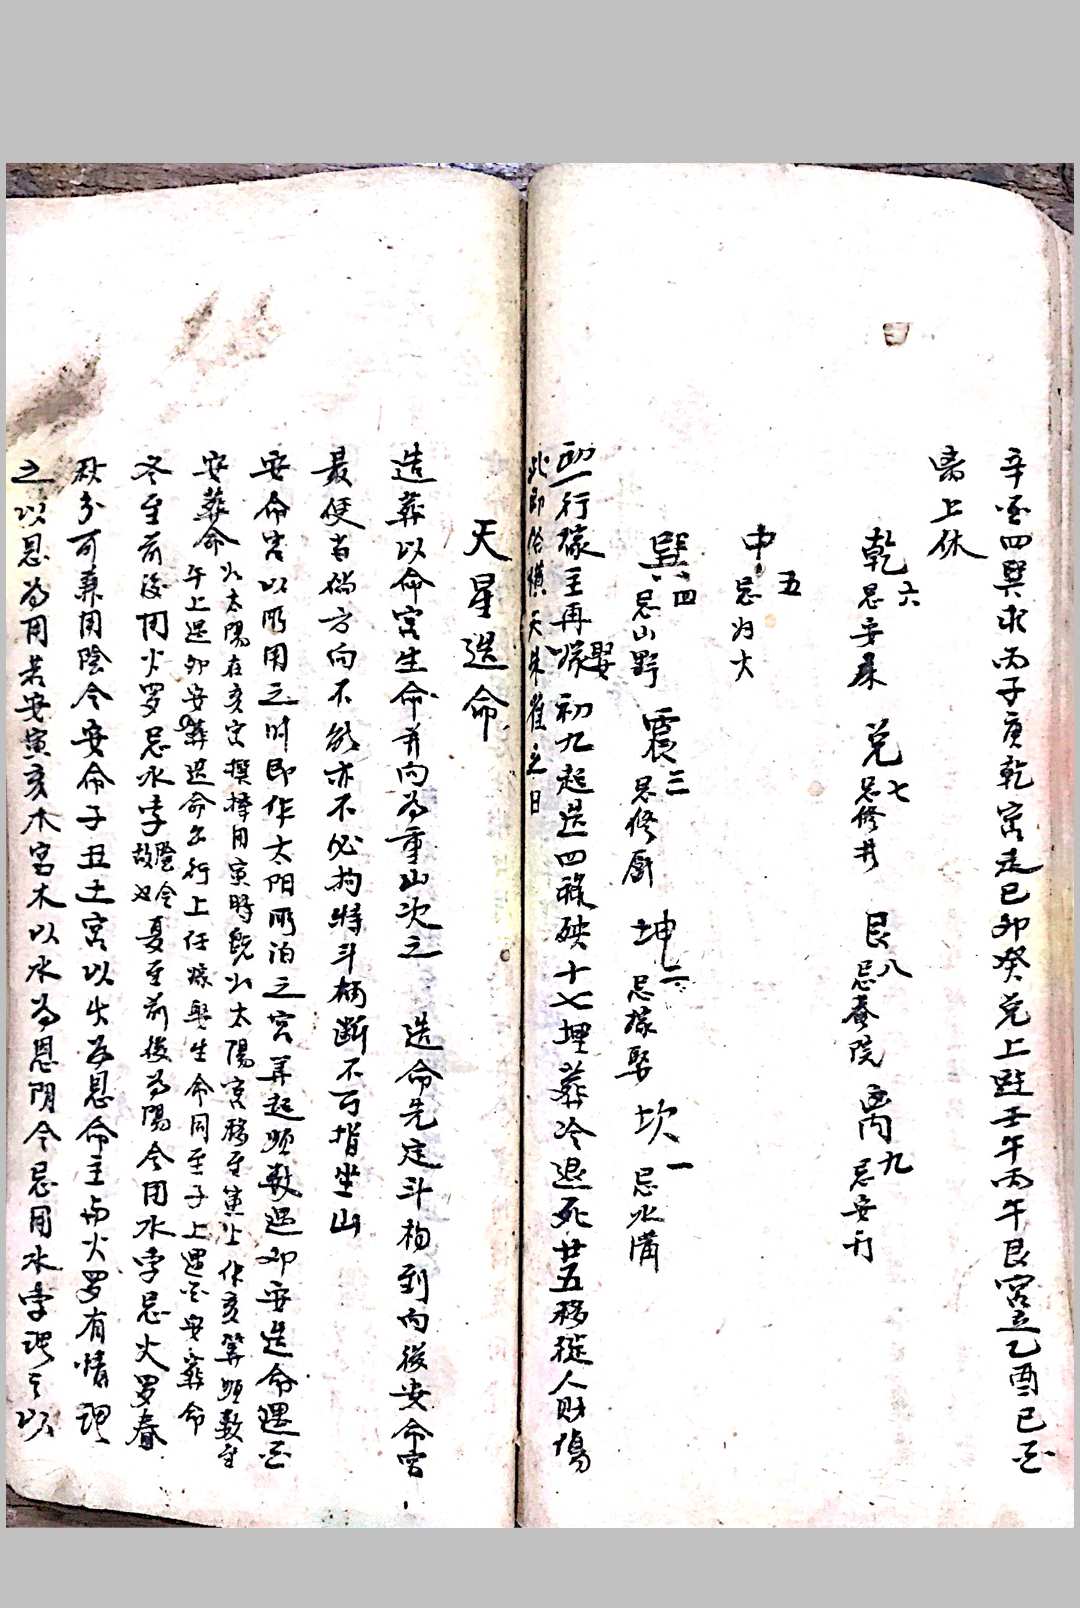 辛酉四巽求丙子庚乾宮走巳卯癸兌上䟫壬午丙午艮宮立乙酉己酉
离上休
乾六 忌安床 兌七 忌修井 艮八 忌養院 离九 忌安門
中五 忌灼火
巽四 忌山野 震三 忌修厨 坤二 忌嫁娶 坎一 忌水溝
初一行嫁主再娶 初九起造四祿殃十七埋葬冷退死廿五移徙人財傷
此即俗横天朱雀之日
天星造命
造葬以命宮生命并向為重山次之 造命先定斗杓到向後安命宮
最使者徜方向不能亦不必拘特斗柄断不可指坐山
安命宮以所用之时即作太阳所泊之宮算起順数遇卯安造命遇酉
安葬命 如太陽在亥宮撰擇用寅時就以太陽宮移至寅上作亥算順数至
午上遇卯安葬造命出行上任嫁娶生命同至子上遇酉安葬命
冬至前後用火罗忌水孛 陰令故如 夏至前後為陽令用水孛忌火罗春
秋分可兼用陰令安命子丑土宮以火為恩命主与火罗有情謂
之以恩為用若安寅亥木宮木以水為恩阴令忌用水孛謂之以